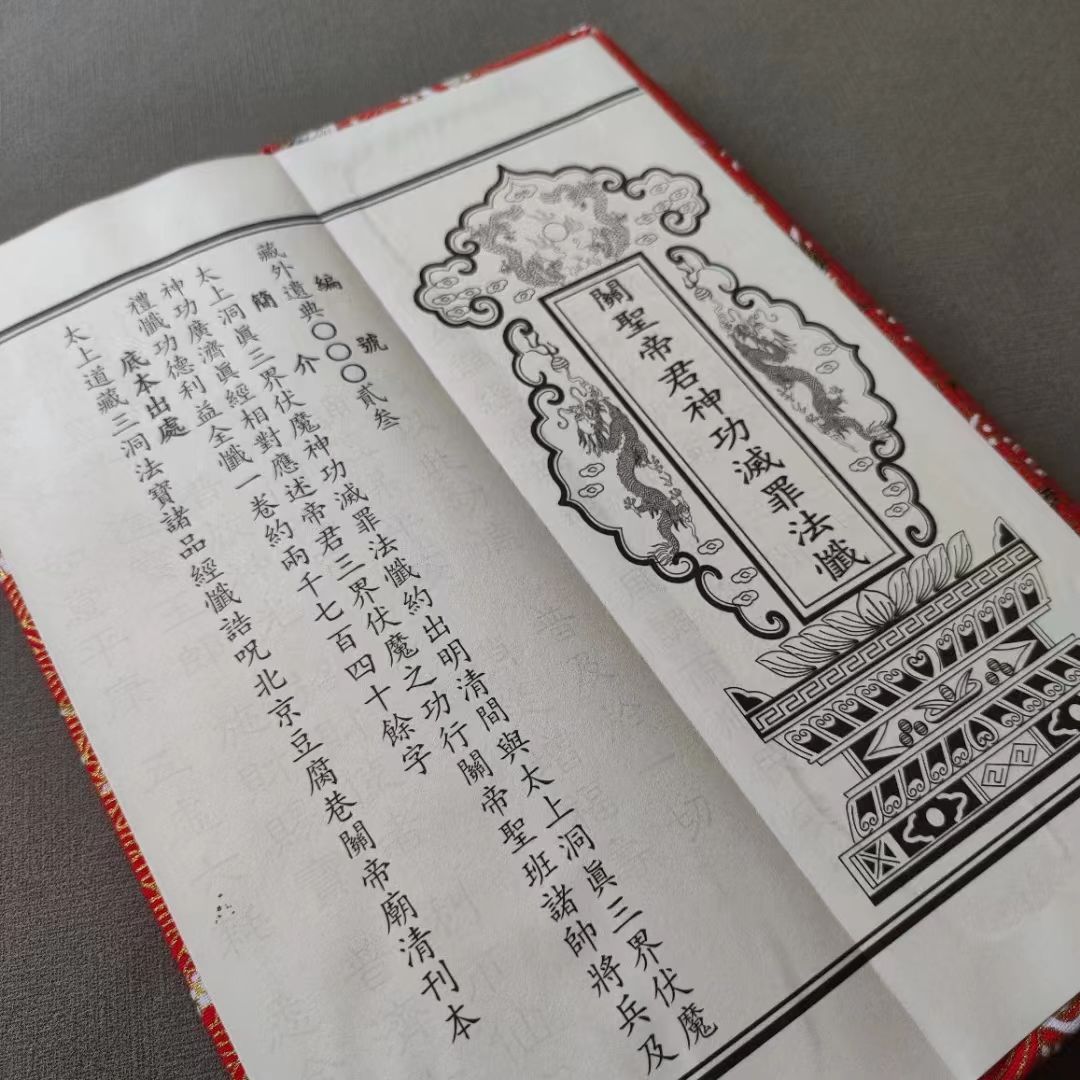 關聖帝君神功滅罪法懺
編號
藏外遺典〇〇〇貳叁
簡介
太上洞眞三界伏魔神功滅罪法懺約出明清間與太上洞眞三界伏魔
神功廣濟眞經相對應述帝君三界伏魔之功行關帝聖班諸帥將兵及
禮懺功德利益全懺一卷約兩千七百四十餘字
底本出處
太上道藏三洞法寶諸品經懺誥呪北京豆腐巷關帝廟清刊本